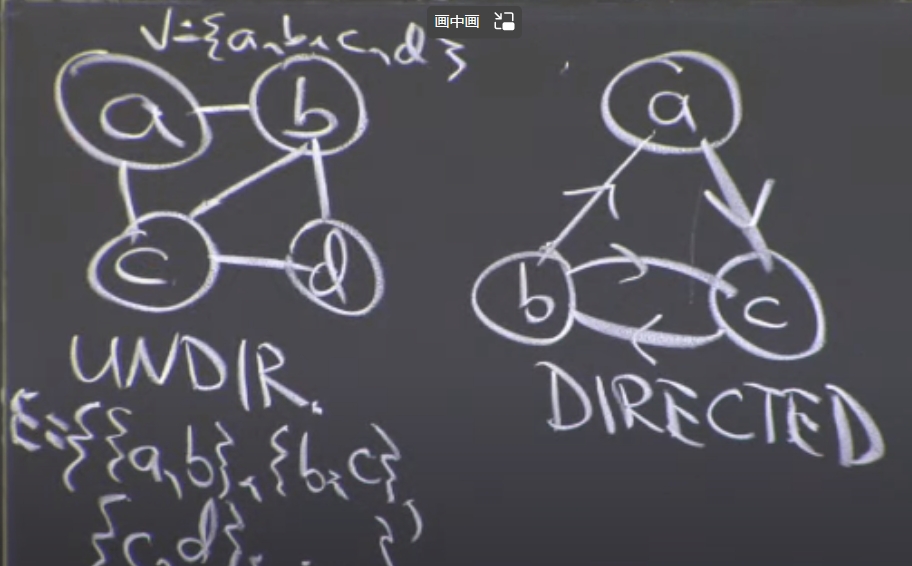 画中画
V={a,b,c,d}
a
b
c
d
UNDIR.
E={{a,b},{b,c}
{c,d}, . . . }
a
b
c
DIRECTED